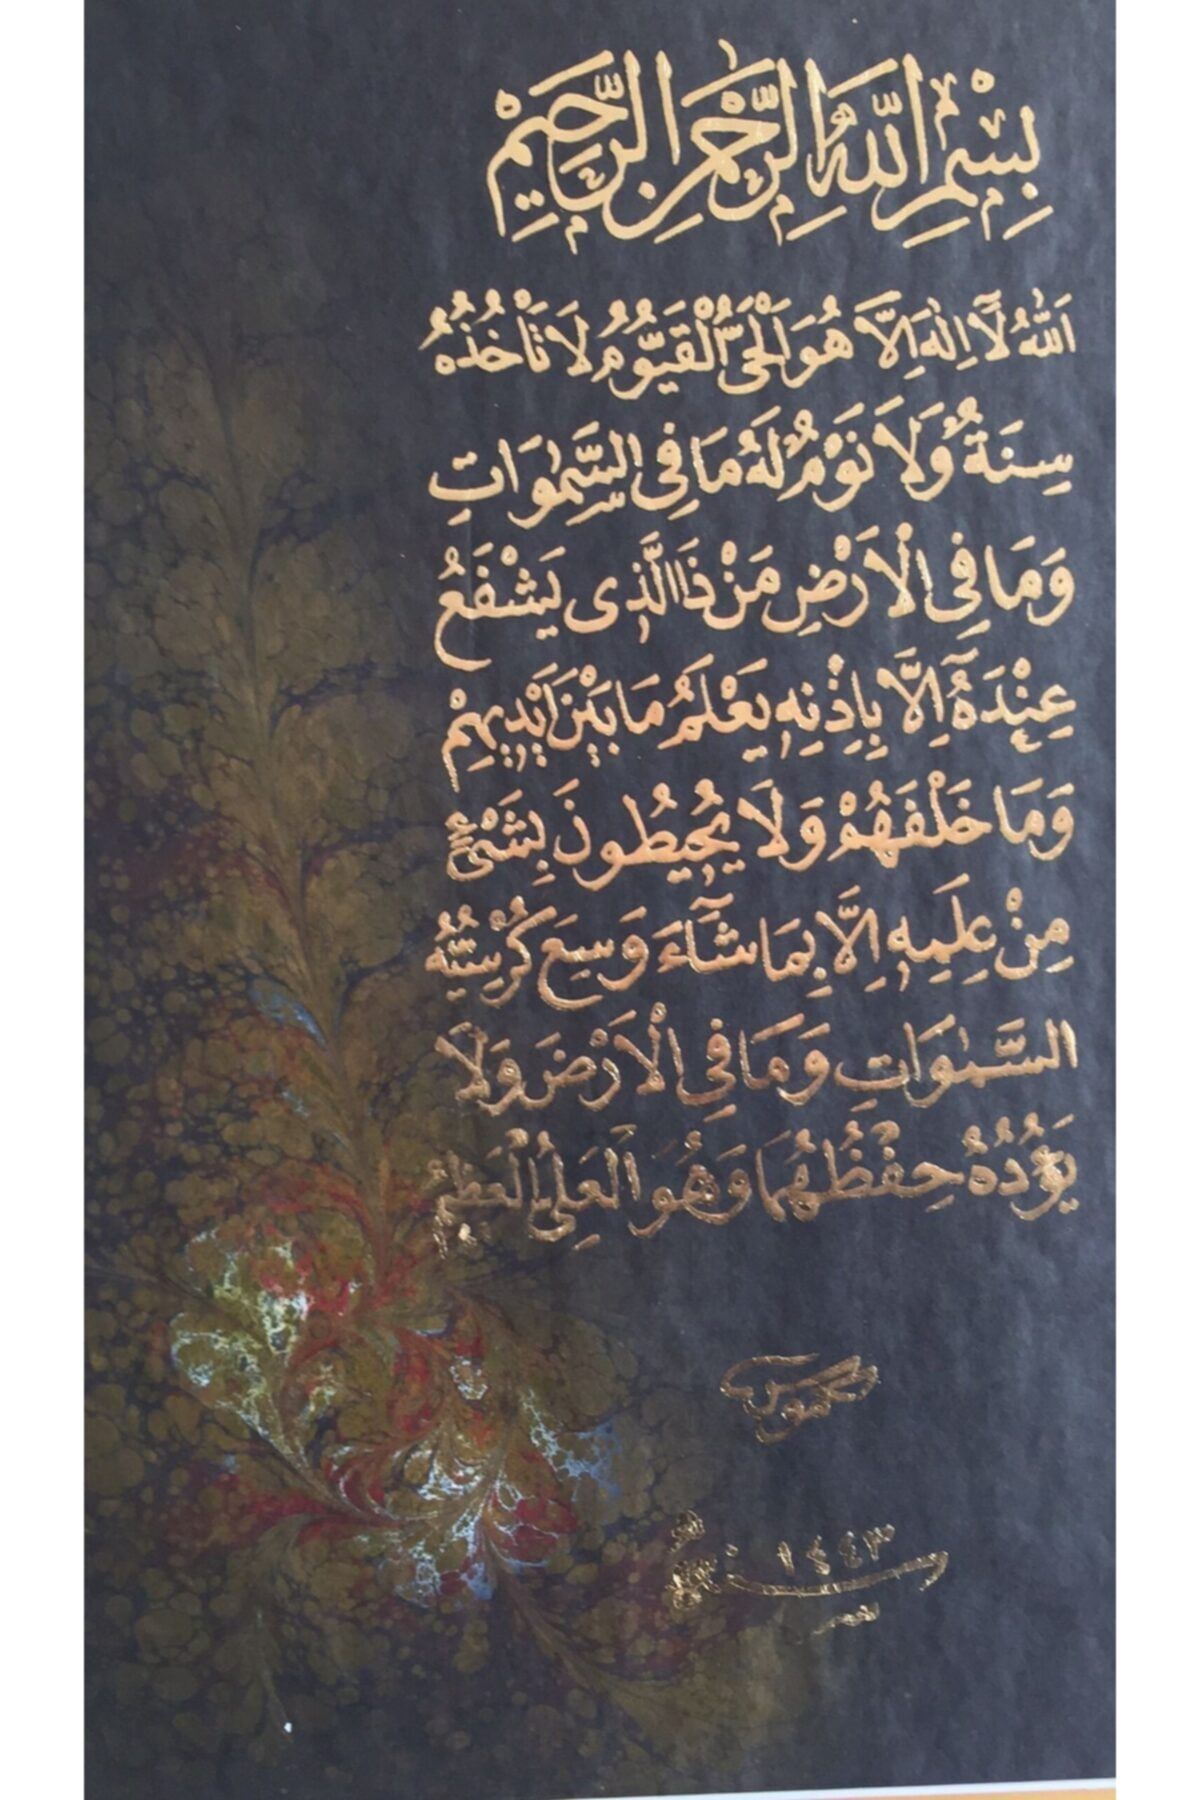 بِسْمِ اللّٰهِ الرَّحْمٰنِ الرَّحِيمِ
اَللّٰهُ لَٓا اِلٰهَ اِلَّا هُوَ اَلْحَىُّ الْقَيُّومُ لَا تَاْخُذُهُ
سِنَةٌ وَلَا نَوْمٌ لَهُ مَا فِى السَّمٰوَاتِ
وَمَا فِى الْاَرْضِ مَنْ ذَا الَّذِى يَشْفَعُ
عِنْدَهُٓ اِلَّا بِاِذْنِهِ يَعْلَمُ مَا بَيْنَ اَيْدِيهِمْ
وَمَا خَلْفَهُمْ وَلَا يُحِيطُونَ بِشَىْءٍ
مِنْ عِلْمِهِ اِلَّا بِمَا شَٓاءَ وَسِعَ كُرْسِيُّهُ
السَّمٰوَاتِ وَمَا فِى الْاَرْضَ وَلَا
يَؤُدُهُ حِفْظُهُمَا وَهُوَ الْعَلِىُّ الْعَظِيمُ
سنة ١٤٤٣